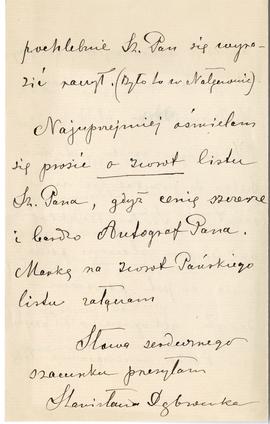 pochlebnie Sz. Pan się wyra-
zić raczył. (Było to w Nałęczowie).
Najuprzejmiej ośmielam
się prosić o zwrot listu
Sz. Pana, gdyż cenię szczerze
i bardzo Autograf Pana.
Markę na zwrot Pańskiego
listu załączam
Słowa serdecznego
szacunku przesyłam
Stanisława